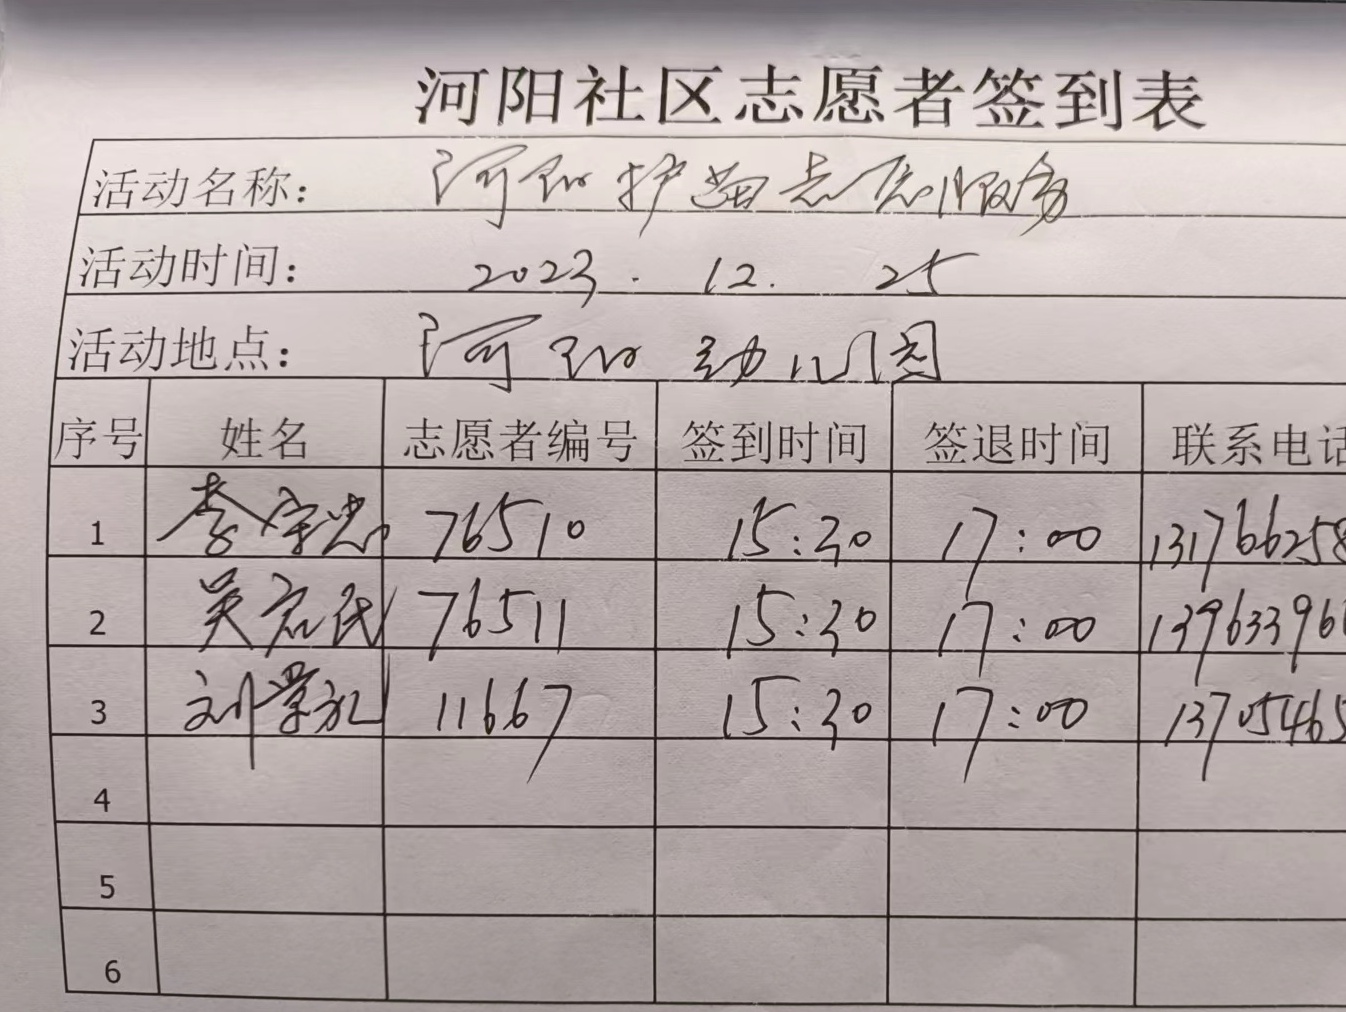 河阳社区志愿者签到表
活动名称： 河阳护苗志愿服务
活动时间： 2023.12.25
活动地点： 河阳幼儿园
序号 姓名 志愿者编号 签到时间 签退时间 联系电话
1 李宗忠 76510 15:30 17:00 131766258
2 吴宏民 76511 15:30 17:00 13963396
3 刘学礼 11667 15:30 17:00 13705465
4
5
6